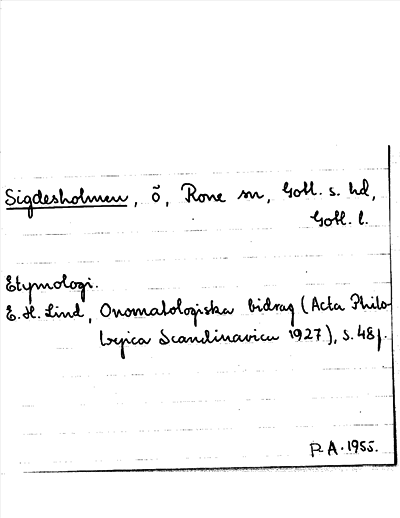 Sigdesholmen, ö, Rone sn, Gotl. s. hd,
Gotl. l.
Etymologi.
E. H. Lind, Onomatologiska bidrag (Acta Philo
logica Scandinavica 1927), s. 48f.
P.A. 1955.